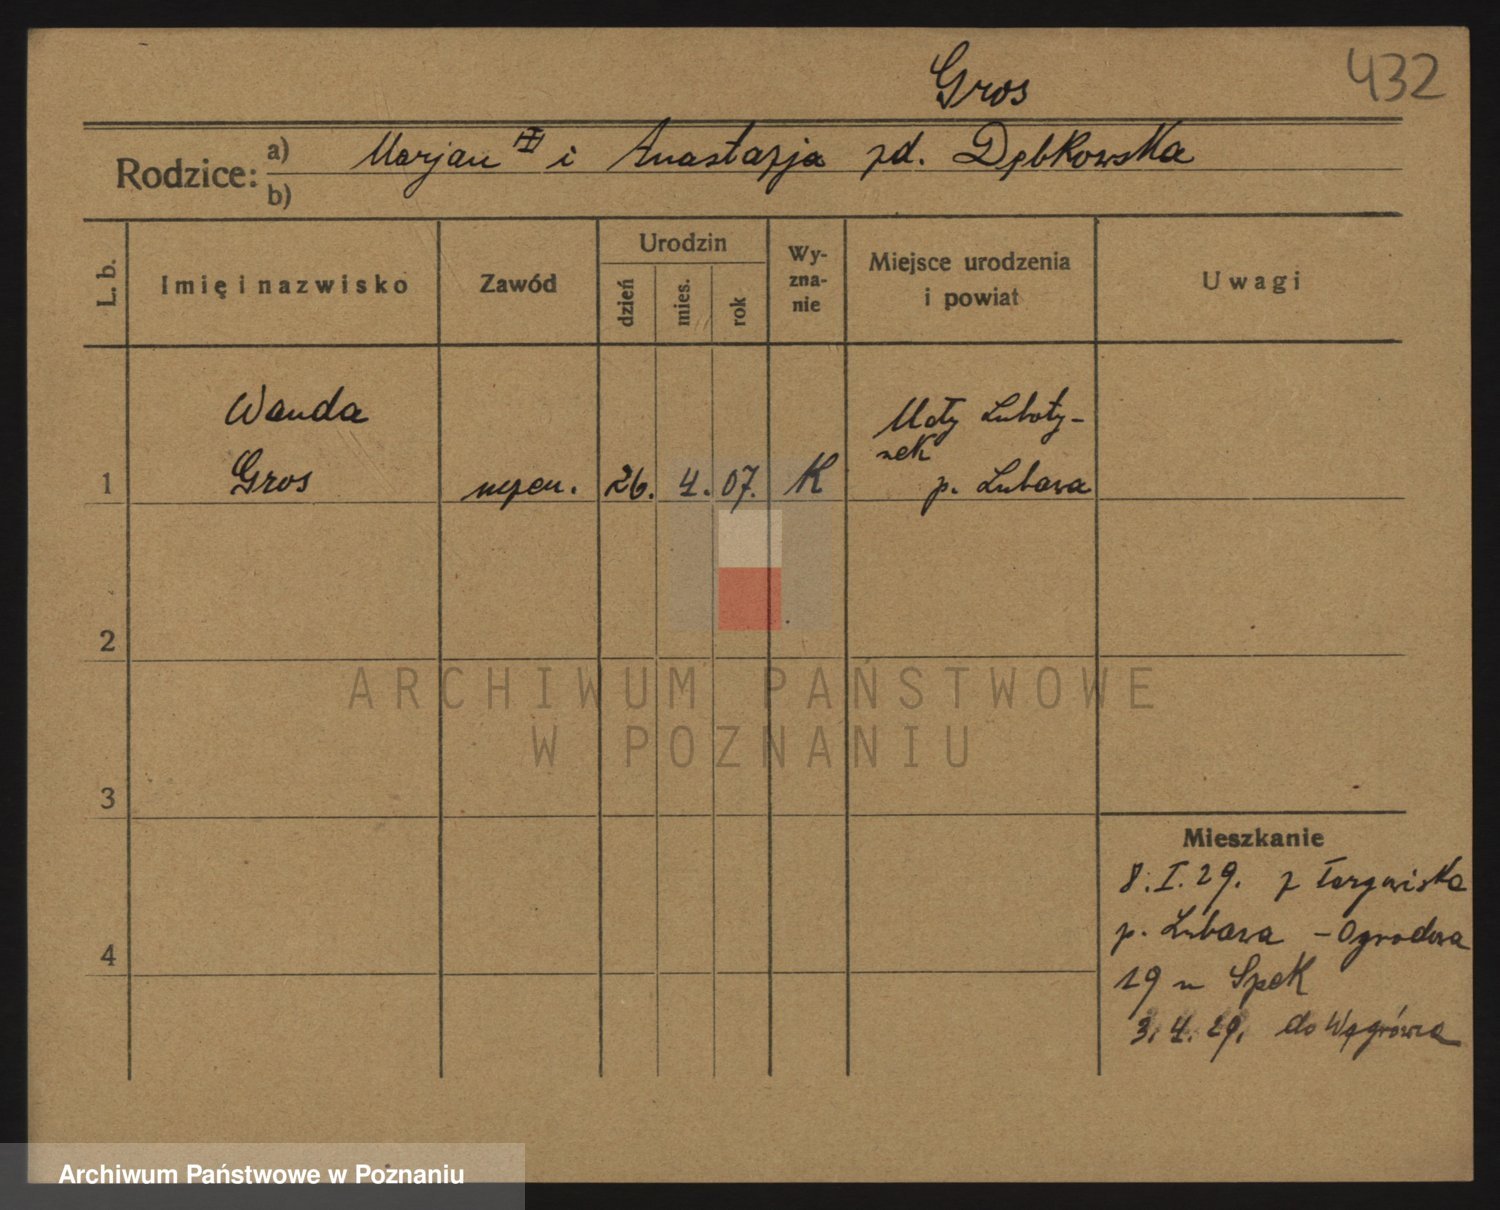 Gros 432
Rodzice: a) Marjan i Anastazja zd. Dębkowska
b)
L. b. Imię i nazwisko Zawód Urodzin dzień mies. rok Wy-
zna-
nie Miejsce urodzenia
i powiat Uwagi
Wanda
Gros
1 26. 4. 07. K Mały Luboty-
nek
p. Lubawa
2
ARCHIWUM PAŃSTWOWE
W POZNANIU
3
Mieszkanie
8. I. 29. z Targowiska
p. Lubawa – Ogrodowa
19 u Spek
3. 4. 29. do Wągrówca
4
Archiwum Państwowe w Poznaniu